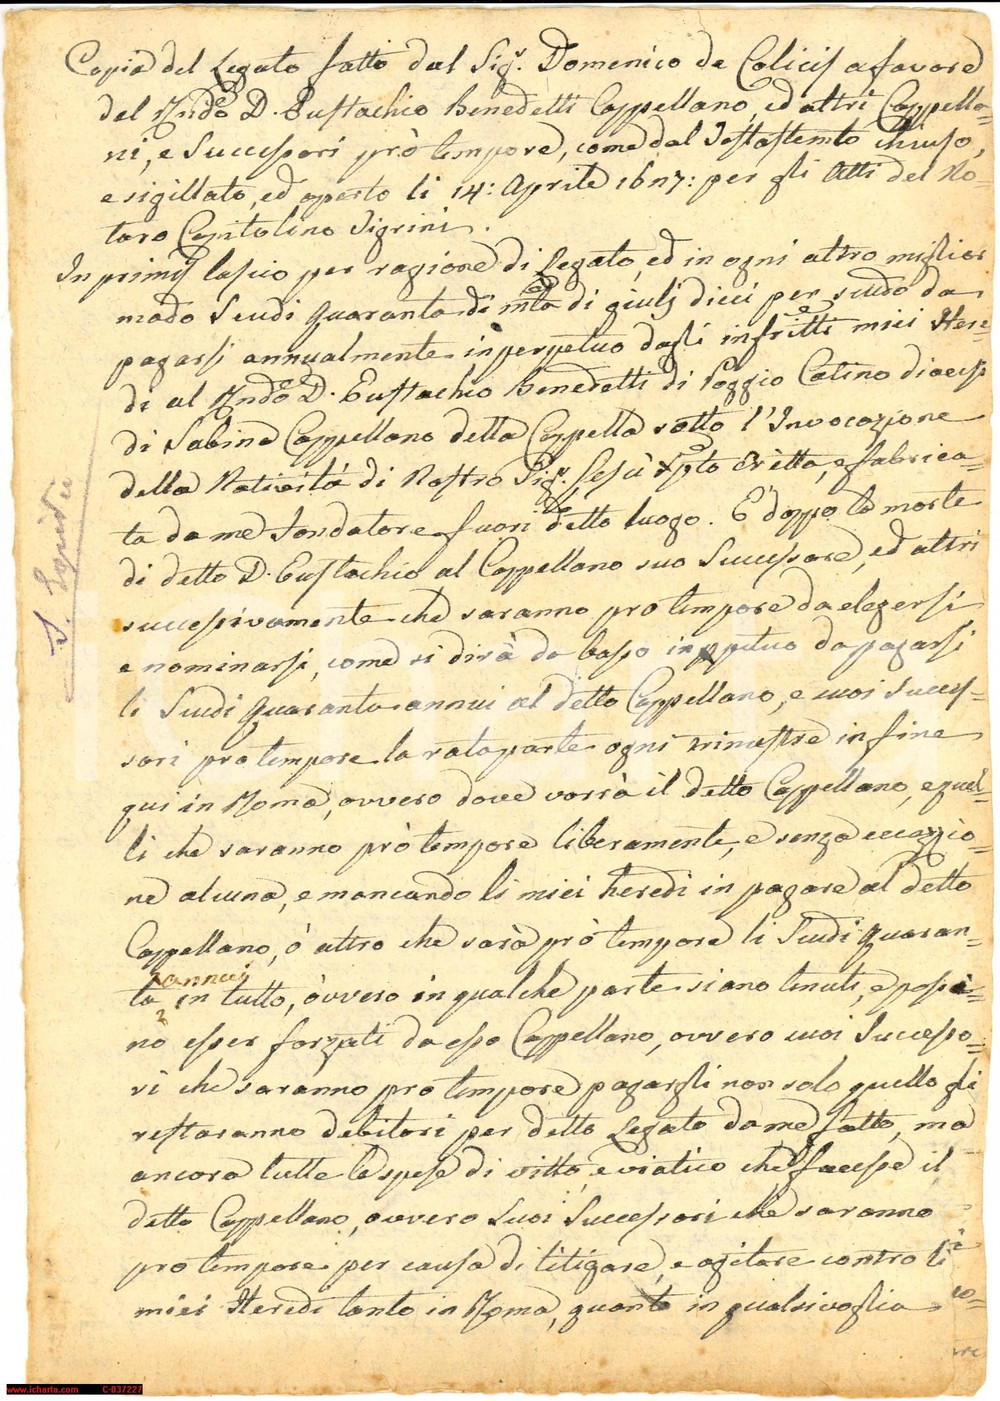 Copia del Legato fatto dal Sigr. Domenico de Calicis a favore
del Rndo D. Eustachio Benedetti Cappellano, ed altri Cappella=
ni, e Successori prò tempore, come dal Testamto chiuso,
e sigillato, ed aperto li 14: Aprile 16n7: per gli Atti del No=
taro Capitolino Sigrini.
In primis lascio per ragione di Legato, ed in ogni altro miglior
modo Scudi Quaranta di mta di giulj dieci per scudo da
pagarsi annualmente in perpetuo dagli infritti miei Here=
di al Rndo D. Eustachio Benedetti di Poggio Catino diocesi
di Sabina Cappellano della Cappella sotto l'Invocazione
della Natività di Nostro Sigr. Gesù Xpto Erètta, e fabrica=
ta da me fondatore fuori detto luogo. E' doppo la morte
di detto D. Eustachio al Cappellano suo Successore, ed altri
successivamente che saranno pro tempore da elegersi
e nominarsi, come si dirà da basso in ppetuo da pagarsi
li Scudi Quaranta annui al detto Cappellano, e suoi Succes=
sori pro tempore la rata parte ogni trimestre in fine
qui in Roma, ovvero dove vorrà il detto Cappellano, e quel=
li che saranno prò tempore liberamente, e senza eccezzio=
ne alcuna, e mancando li miei heredi in pagare al detto
Cappellano, ò altro che sarà prò tempore li Scudi Quaran=
annui
ta in tutto, òvvero in qualche parte siano tenuti, e possi=
no esser forzati da esso Cappellano, ovvero suoi Successo=
ri che saranno pro tempore pagargli non solo quello gli
restaranno debitori per detto Legato da me fatto, ma
ancora tutte le spese di vitto, e viatico che facesse il
detto Cappellano, ovvero Suoi Successori che saranno
pro tempore per causa di litigare, e agitare contro li
miei Heredi tanto in Roma, quanto in qualsivoglia
www.icharta.com C-037227